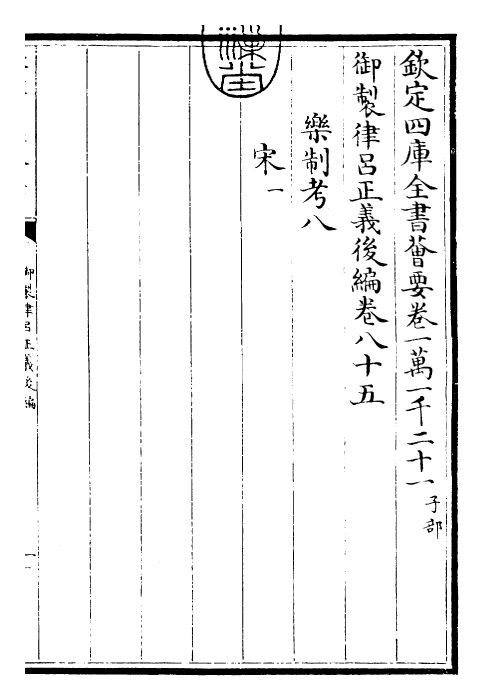 欽定四庫全書薈要卷一萬一千二十一 子部
御製律呂正義後編卷八十五
樂制考八
宋一
御製律呂正義後編